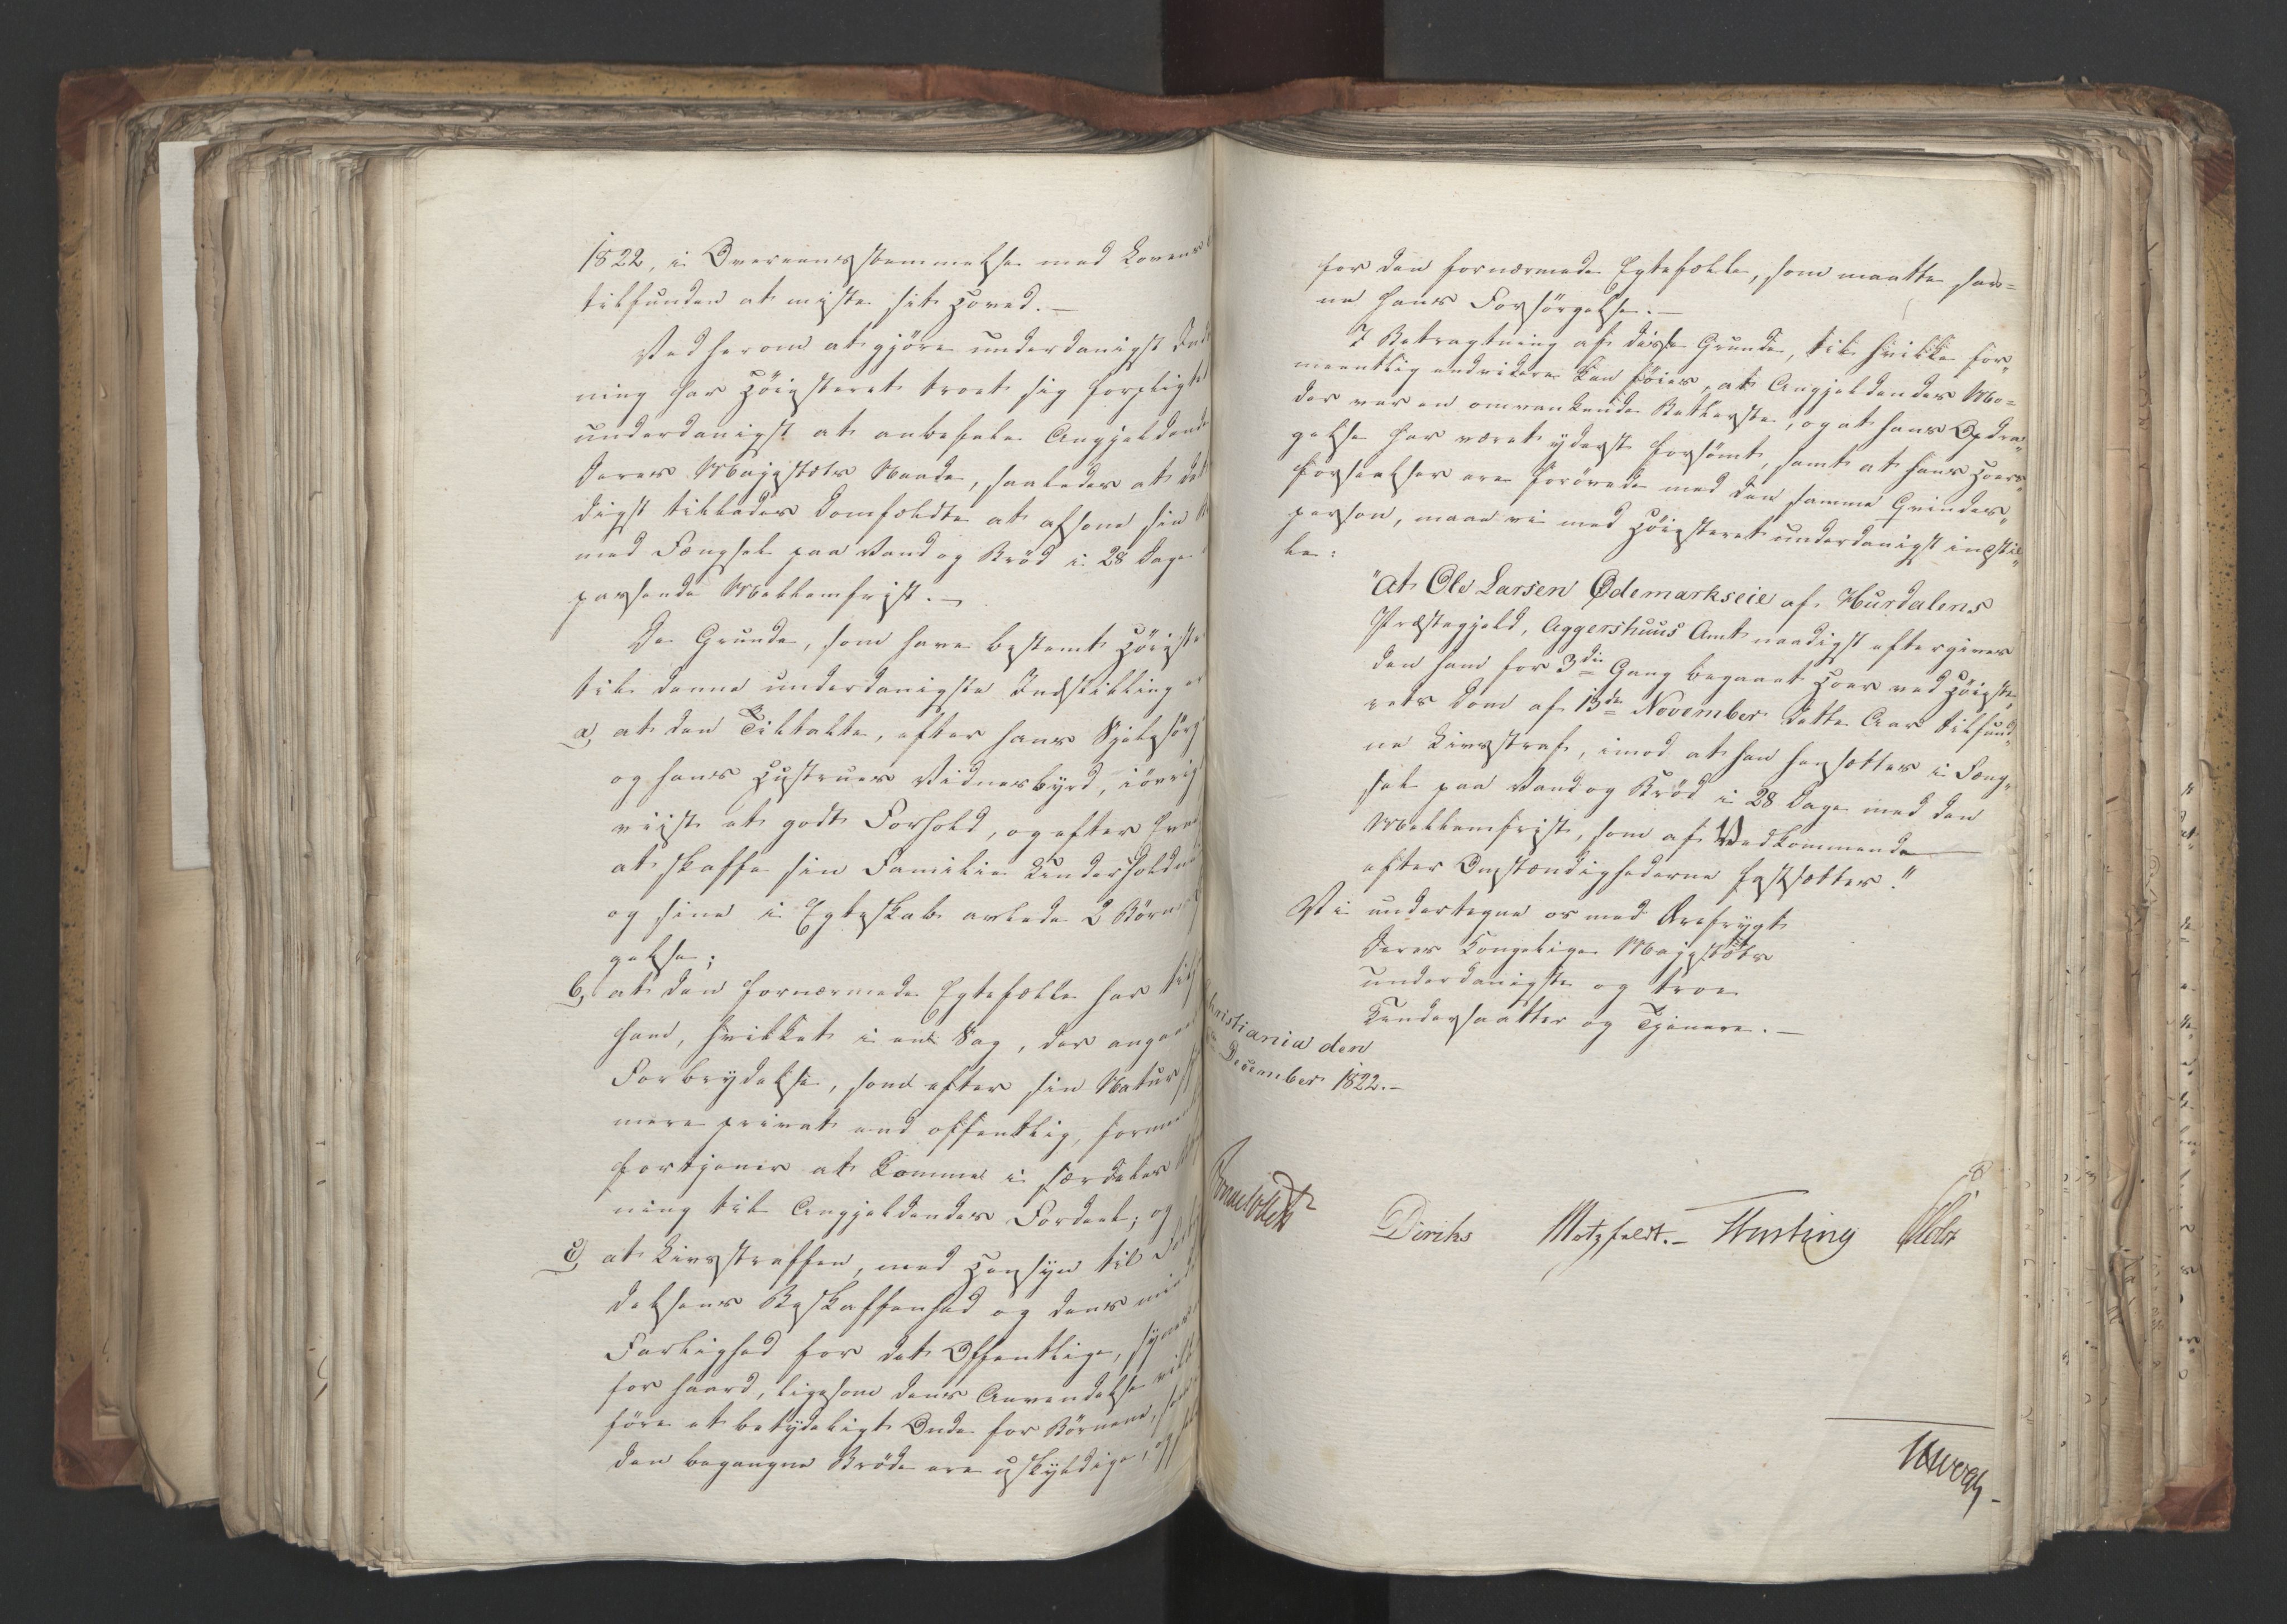 1822, i Overeensstemmelse med Lovens
tilfunden at miste sit Hoved. —
Ved herom at gjöre underdanigst Ind
ning har Höiesteret troet sig forpligtet
underdanigst at anbefale Angjeldende
Deres Majestæts Naade, saaledes at det
digst tillades Domfældte at afsone sin
med Fængsel paa Vand og Bröd i 28 Dage
passende Mellemfrist. —
De Grunde, som have bestemt Höieste
til denne underdanigste Indstilling er
a, at den Tiltalte, efter hans Sjelesörg
og hans Hustrues Vidnesbyrd, iövrig
viist et godt Forhold, og efter
at skaffe sin Familie Underholdni
og sine i Egteskab avlede 2 Börn
gelse;
b, at den fornærmede Egtefælle har
ham, hvilket i en Sag, der angaaer
Forbrydelse, som efter sin Natur
mere privat end offentlig, formee
fortjener at komme i særdeles
ning til Angjeldendes Fordeel; og
c, at Livsstraffen, med Hensyn til
delsens Beskaffenhed og dens mi
Farlighed for det Offentlige, synes
for haard, ligesom dens Anvendelse vil
före et betydeligt Onde for Börnene,
den begangne Bröde ere uskyldige, og
for den fornærmede Egtefælle, som maatte sav=
ne hans Forsörgelse. —
I Betragtning af disse Grunde, til hvilke for„
meentlig endvidere kan föies, at Angjeldendes Mo=
der var en omvankende Betlerske, og at hans Opdra„
gelse har været yderst forsömt, samt at hans Hoers„
forseelser ere forövede med den samme Qvindes„
person, maae vi med Höiesteret underdanigst indstil„
le:
"At Ole Larsen Ødemarkseie af Hurdalens
Præstegjeld, Aggershuus Amt naadigst eftergives
den ham for 3die Gang begaaet Hoer ved Höieste„
rets Dom af 13de November dette Aar tilfund„
ne Livsstraf, imod at han hensættes i Fæng„
sel paa Vand og Bröd i 28 Dage med den
Mellemfrist, som af Vedkommende
efter Omstændighederne fastsættes."
Vi undertegne os med Ærefrygt
Deres Kongelige Majestæts
underdanigste og troe
Undersaatter og Tjenere. —
Christiania den
December 1822. —
Sommerhielm
Diriks
Motzfeldt. —
Fasting
Holst
Hvoslef